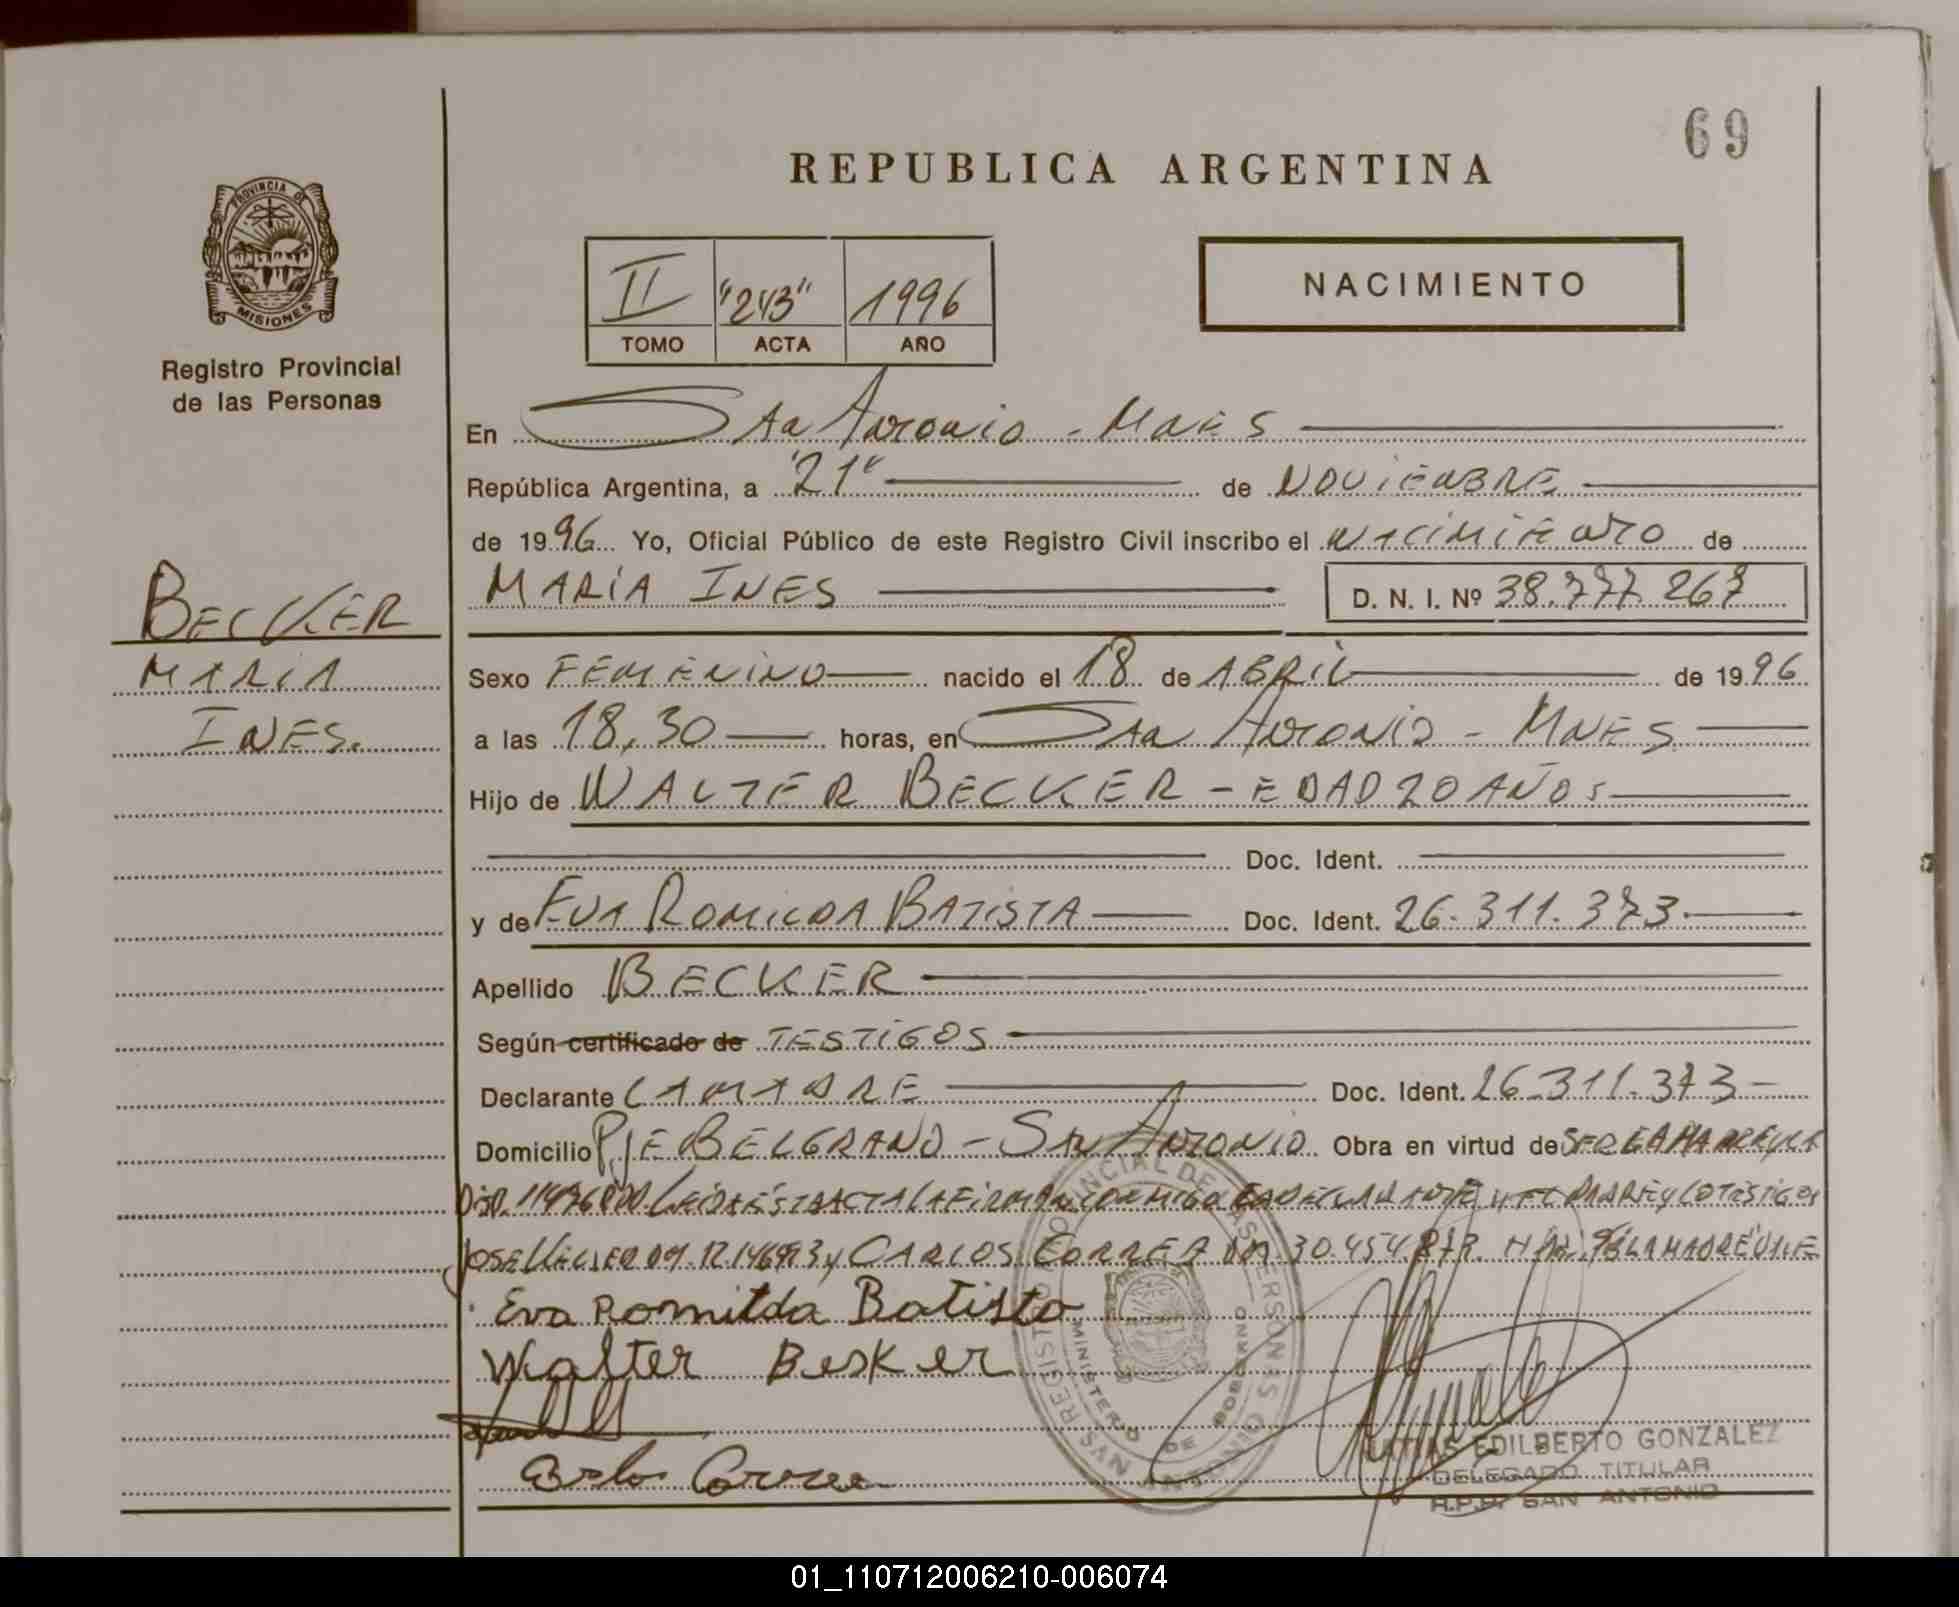 69
REPUBLICA ARGENTINA
PROVINCIA DE
MISIONES
Registro Provincial
de las Personas
II "243" 1996
TOMO ACTA AÑO
NACIMIENTO
En San Antonio - Mnes
República Argentina, a "21" de NOVIEMBRE
de 1996 Yo, Oficial Público de este Registro Civil inscribo el NACIMIENTO de
MARIA INES D. N. I. Nº 38.777.267
BECKER
MARIA
INES.
Sexo FEMENINO nacido el 18 de ABRIL de 1996
a las 18,30 horas, en San Antonio - MNES
Hijo de WALTER BECKER - EDAD 20 AÑOS
Doc. Ident.
y de EVA ROMILDA BATISTA Doc. Ident. 26.311.373
Apellido BECKER
Según certificado de TESTIGOS
Declarante LA MADRE Doc. Ident. 26.311.373
Domicilio PJE BELGRANO - SAN ANTONIO Obra en virtud de SER LA MADRE
LEIDA ESTA ACTA LA FIRMAN CONMIGO LA DECLARANTE Y EL PADRE Y LO TESTIGOS
JOSE y CARLOS CORREA DNI 30.454. LA MADRE
Eva Romilda Batista
Walter Besker
Carlos Correa
REGISTRO PROVINCIAL DE LAS PERSONAS
MINISTERIO DE GOBIERNO
SAN ANTONIO
MATIAS EDILBERTO GONZALEZ
DELEGADO TITULAR
R.P.P. SAN ANTONIO
01_110712006210-006074